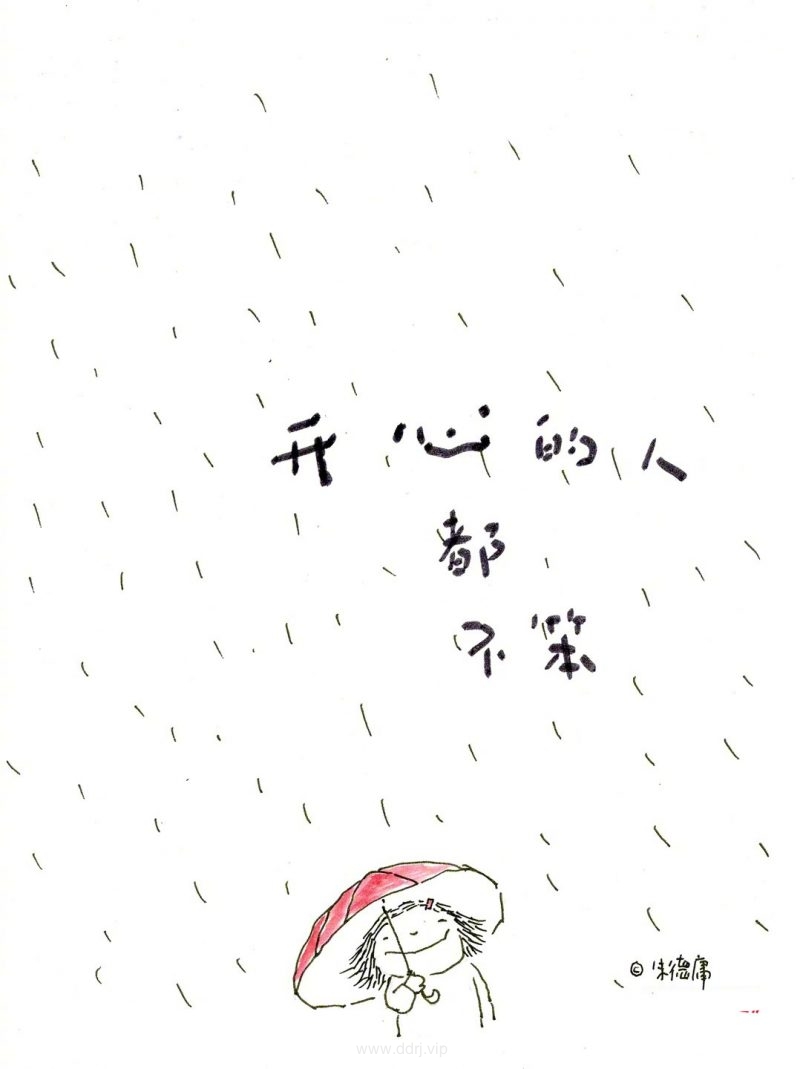 开心的人
都
不笨
© 朱德庸
www.ddrj.vip